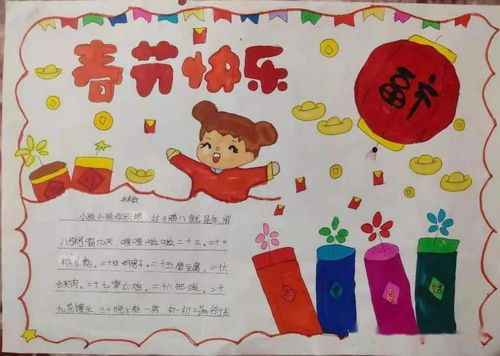 春节快乐
福
小孩小孩你别馋 过了腊八就是年 腊
八粥喝几天，哩哩啦啦二十三。二十
二十四扫房子。二十五磨豆腐。二十六
去买肉。二十七宰公鸡。二十八把面发。二十
九蒸馒头 三十晚上熬一宵 初一初二满街走